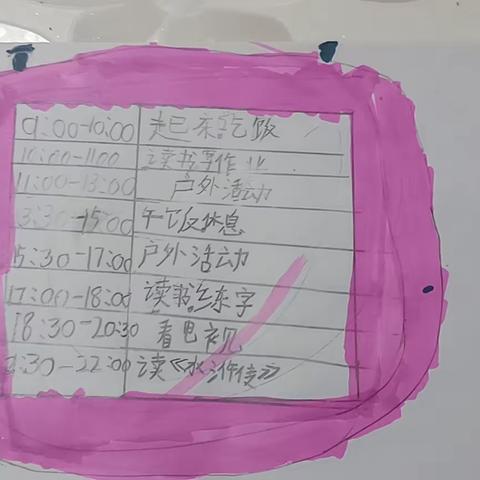 09:00-10:00 起床吃饭
10:00-11:00 读书写作业
11:00-13:00 户外活动
13:30-15:00 午饭休息
15:30-17:00 户外活动
17:00-18:00 读书练字
18:30-20:30 看电视
:30-22:00 读《水浒传》